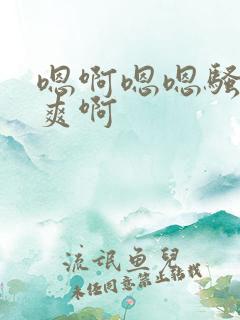 嗯啊嗯嗯骚
爽啊
流氓鱼儿
未经同意禁止转载